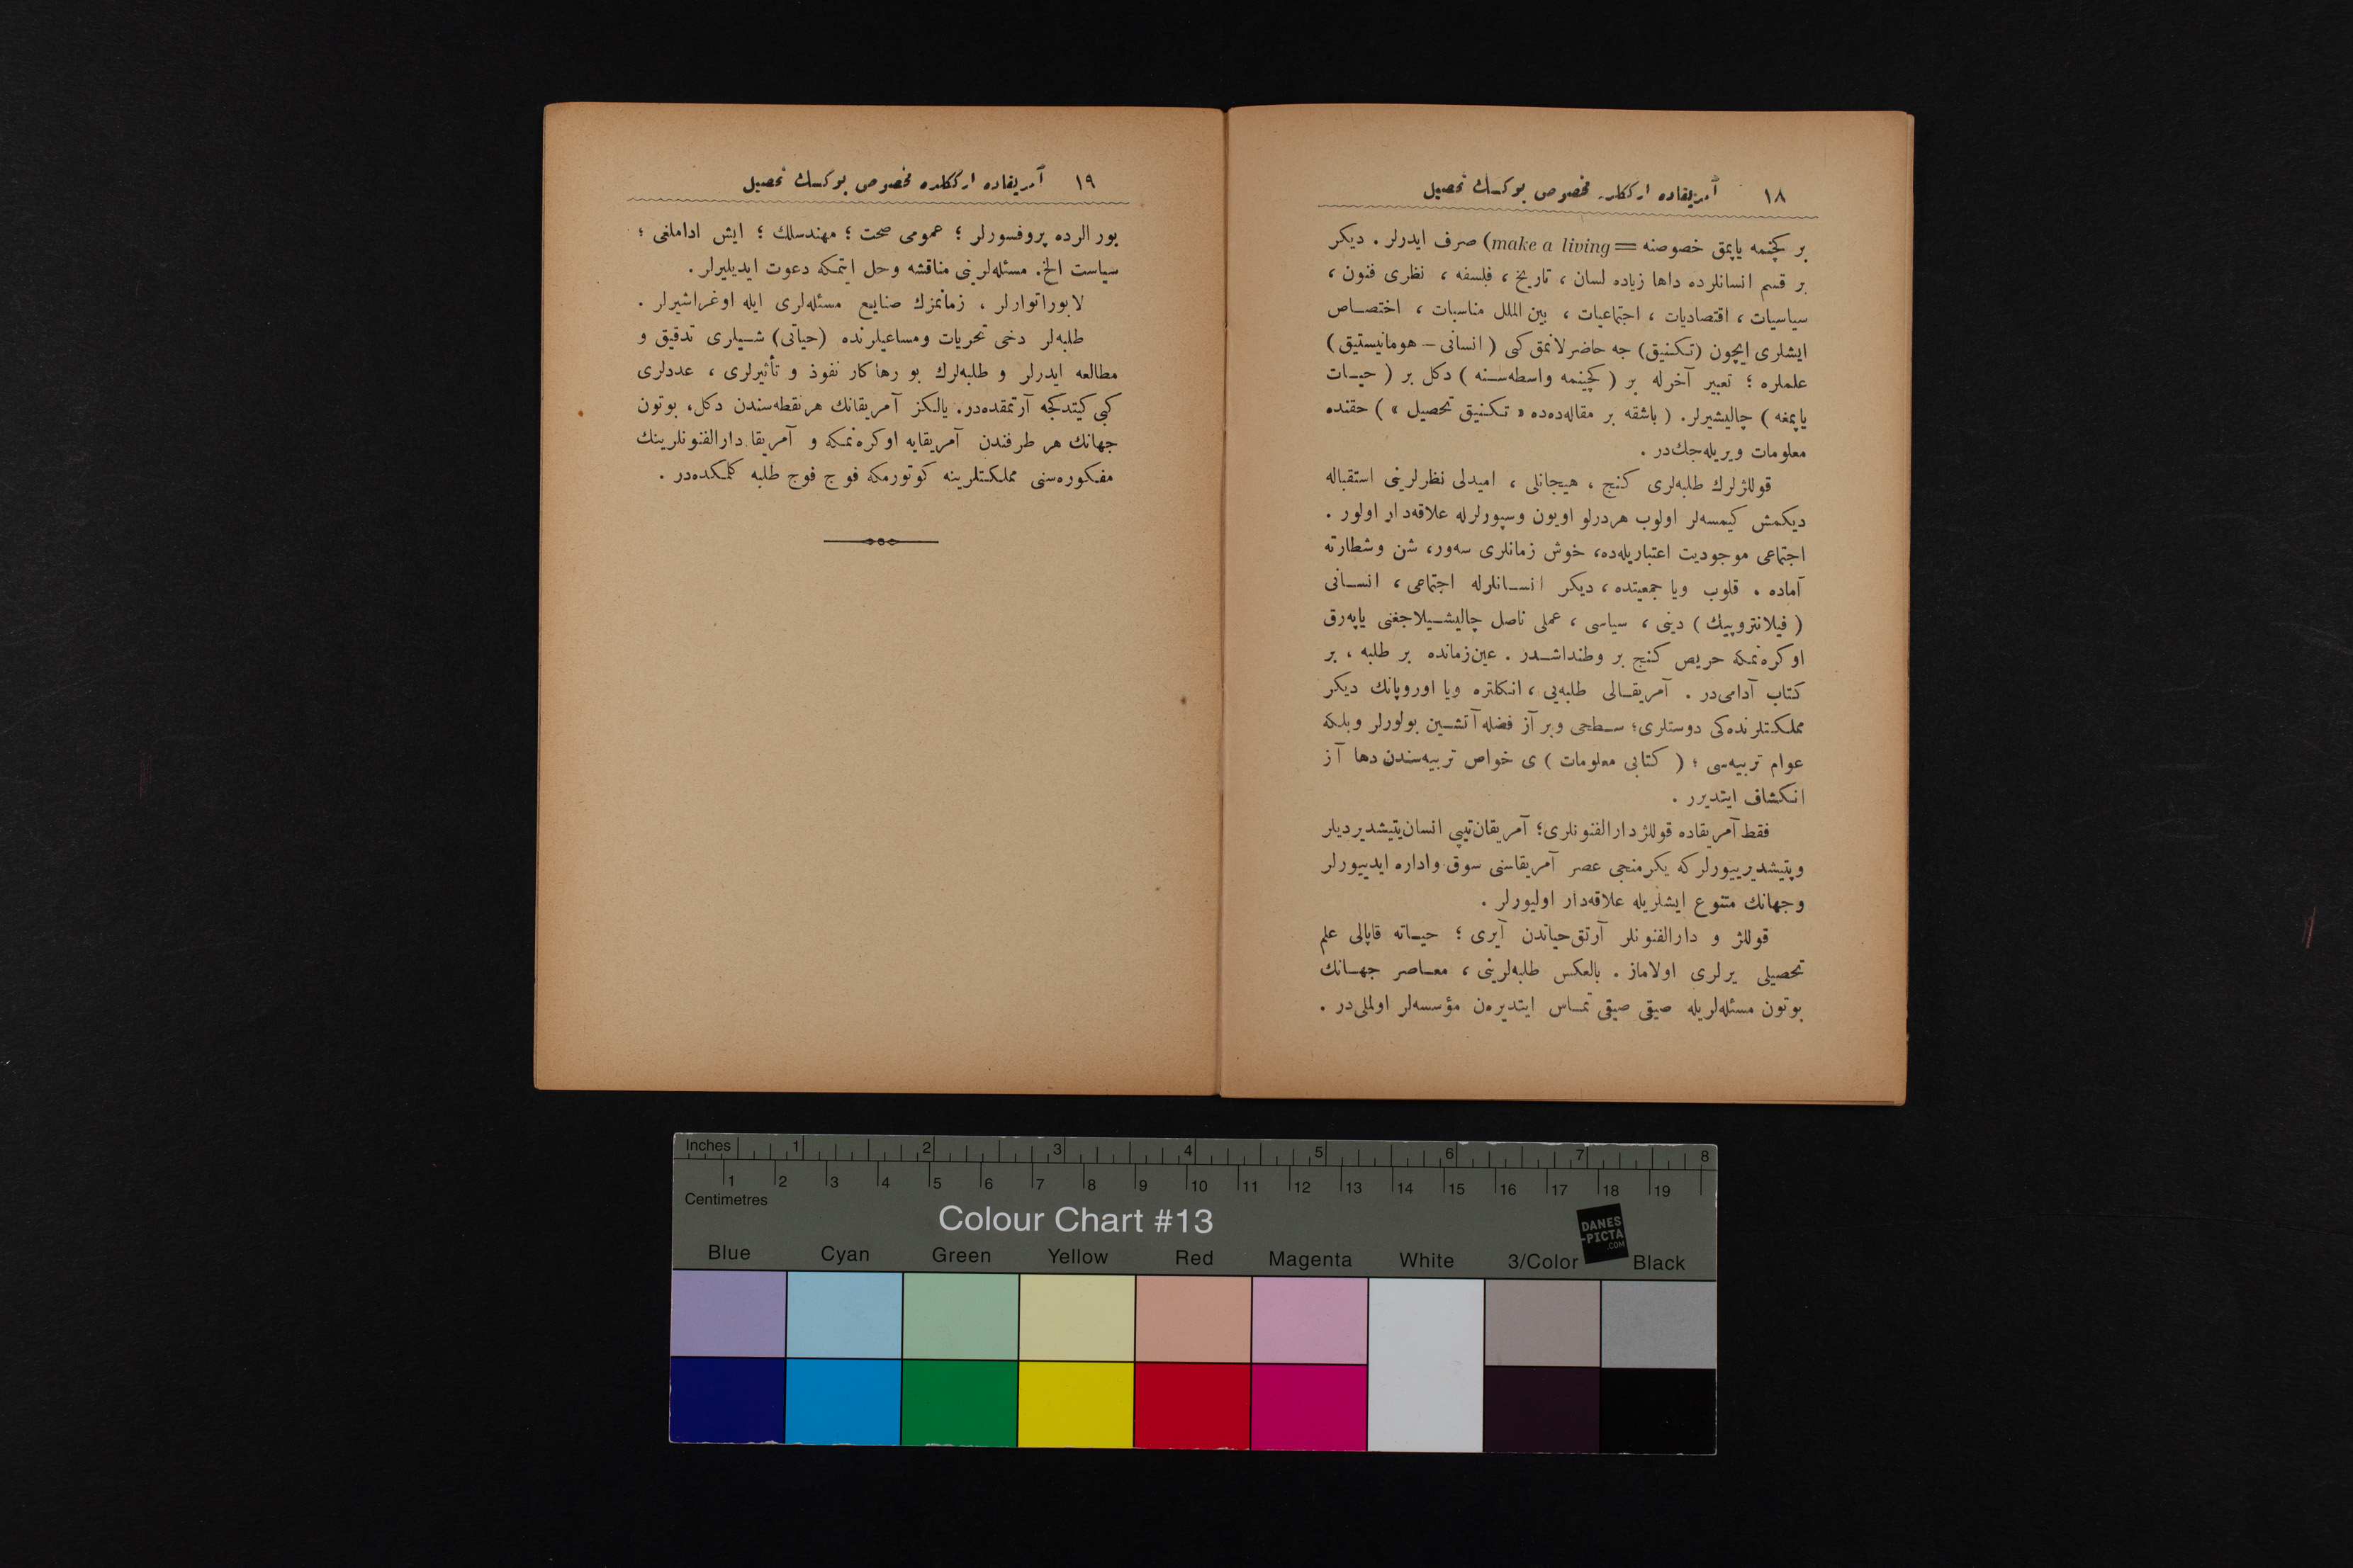 ١٨ آمریقاده ارککلره مخصوص یوکسك تحصیل
بر کچنمه یاپمق خصوصنه = make a living) صرف ایدرلر . دیکر
بر قسم انسانلرده داها زیاده لسان ، تاریخ ، فلسفه ، نظری فنون ،
سیاسیات ، اقتصادیات ، اجتماعیات ، بین الملل مناسبات ، اختصاص
ایشلری ایچون (تکنیق) جه حاضرلانمق کی ( انسانی – هومانیستیق )
علملره ؛ تعبیر آخرله بر ( کچینمه واسطه‌سنه ) دکل بر ( حیات
یاپمغه ) چالیشیرلر. ( باشقه بر مقاله‌ده‌ده « تکنیق تحصیل » ) حقنده
معلومات ویریله‌جك‌در .
قوللژلرك طلبه‌لری کنج ، هیجانلی ، امیدلی نظرلرینی استقباله
دیکمش کیمسه‌لر اولوب هردرلو اویون وسپورلرله علاقه‌دار اولور .
اجتماعی موجودیت اعتباریله‌ده، خوش زمانلری سه‌ور، شن وشطارته
آماده . قلوب ویا جمعیتده ، دیکر انسانلرله اجتماعی ، انسانی
( فیلانتروپیك ) دینی ، سیاسی ، عملی ناصل چالیشیلاجغنی یاپه‌رق
اوکره‌نمکه حریص کنج بر وطنداشدر . عین‌زمانده بر طلبه ، بر
کتاب آدامی‌در . آمریقالی طلبه‌یی ، انکلتره ویا اوروپانك دیکر
مملکتلرنده‌کی دوستلری؛ سطحی وبر آز فضله آتشین بولورلر وبلکه
عوام تربیه‌سی ؛ ( کتابی معلومات ) ی خواص تربیه‌سندن دها آز
انکشاف ایتدیرر .
فقط آمریقاده قوللژ دارالفنونلری؛ آمریقان‌تیپی انسان‌یتیشدیردیلر
ویتیشدیرییورلرکه یکرمنجی عصر آمریقاسنی سوق واداره ایدییورلر
وجهانك متنوع ایشلریله علاقه‌دار اولیورلر .
قوللژ و دارالفنونلر آرتق‌حیاتدن آیری ؛ حیاته قاپالی علم
تحصیلی یرلری اولاماز . بالعکس طلبه‌لرینی ، معاصر جهانك
بوتون مسئله‌لریله صیقی صیقی تماس ایتدیره‌ن مؤسسه‌لر اولملی‌در .
١٩ آمریقاده ارککلره مخصوص یوکسك تحصیل
بورالرده پروفسورلر ؛ عمومی صحت ؛ مهندسلك ؛ ایش اداملغی ؛
سیاست الخ. مسئله‌لرینی مناقشه وحل ایتمکه دعوت ایدیلیرلر .
لابوراتوارلر ، زمانمزك صنایع مسئله‌لری ایله اوغراشیرلر .
طلبه‌لر دخی تحریات ومساعیلرنده (حیاتی) شیلری تدقیق و
مطالعه ایدرلر و طلبه‌لرك بو رهاکار نفوذ و تأثیرلری ، عددلری
کبی کیتدکجه آرتمقده‌در. یالکز آمریقانك هرنقطه‌سندن دکل، بوتون
جهانك هر طرفندن آمریقایه اوکره‌نمکه و آمریقا دارالفنونلرینك
مفکوره‌سنی مملکتلرینه کوتورمکه فوج فوج طلبه کلمکده‌در .
Inches 1 2 3 4 5 6 7 8
1 2 3 4 5 6 7 8 9 10 11 12 13 14 15 16 17 18 19
Centimetres
Colour Chart #13
DANES
-PICTA
.COM
Blue Cyan Green Yellow Red Magenta White 3/Color Black